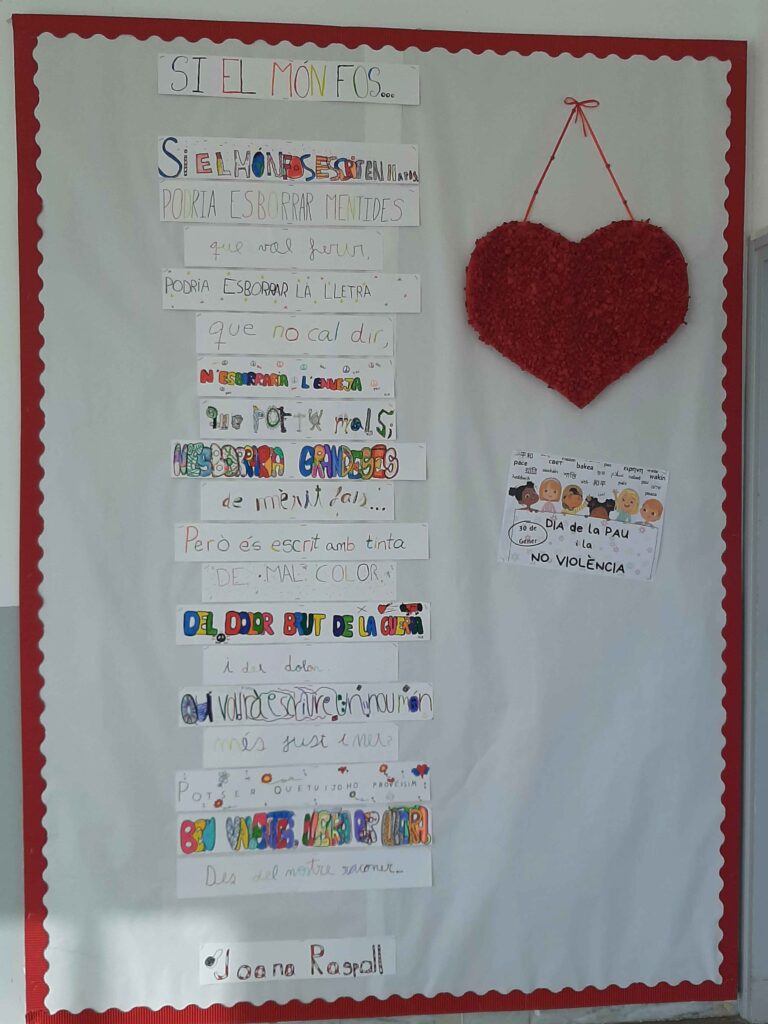 SI EL MÓN FOS...
SI EL MÓN FOS ESCRIT EN llapis
PODRIA ESBORRAR MENTIDES
que vol ferir,
PODRIA ESBORRAR LA LLETRA
que no cal dir,
N'ESBORRARIA L'ENVEJA
que
N'ESBORRARIA GRANDESES
de mèrit fals...
Però és escrit amb tinta
DE MAL COLOR,
DEL DOLOR BRUT DE LA GUERRA
i del dolor.
Qui voldrà escriure un nou món
més just i net?
POTSER QUE TU I JO HO PROVÉSSIM
BEN
Des del nostre raconet...
Joana Raspall
和平
pace
CAET
bakea
pau
ειρηνη
wakin
和平
pace
30 de
Gener
DIA de la PAU
i la
NO VIOLÈNCIA